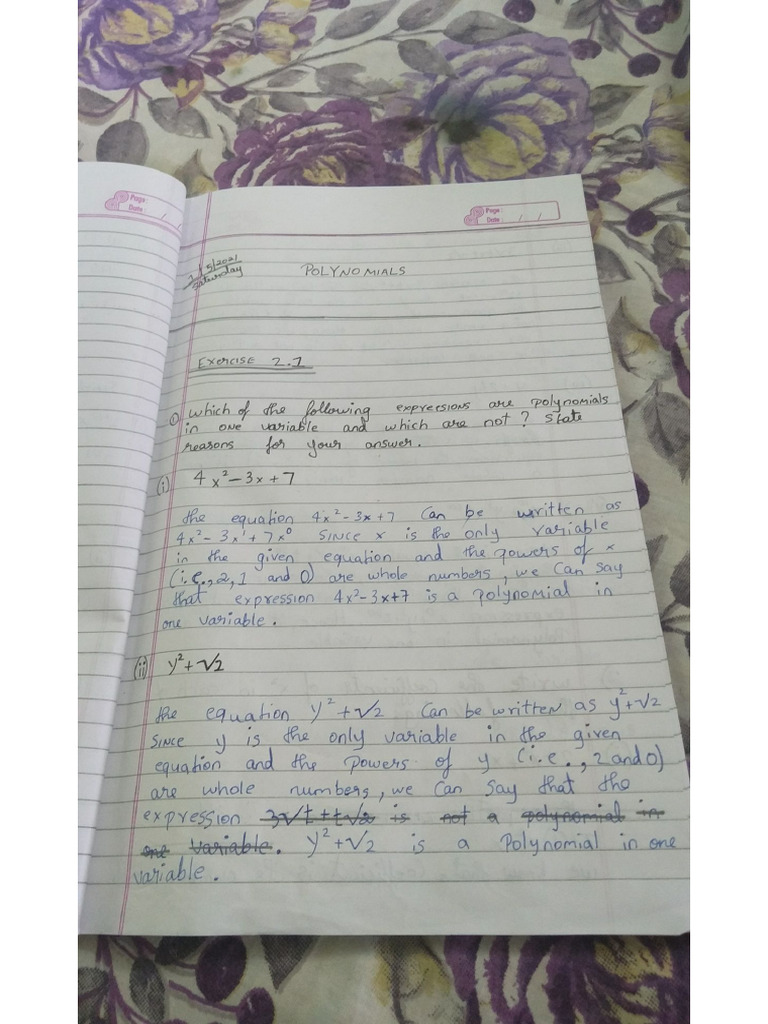 Page:
Date: / /
Page:
Date: / /
1/5/2021
Saturday
POLYNOMIALS
Exercise 2.1
① Which of the following expressions are polynomials
in one variable and which are not? State
reasons for your answer.
(i) 4x² - 3x + 7
The equation 4x² - 3x + 7 Can be written as
4x² - 3x¹ + 7x⁰ Since x is the only variable
in the given equation and the powers of x
(i.e., 2, 1 and 0) are whole numbers, we Can say
that expression 4x² - 3x + 7 is a polynomial in
one variable.
(ii) y² + √2
The equation y² + √2 Can be written as y² + √2
Since y is the only variable in the given
equation and the powers of y (i.e., 2 and 0)
are whole numbers, we Can Say that the
expression 3√t + t√2 is not a polynomial in
one variable. y² + √2 is a Polynomial in one
variable.